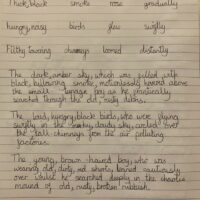 Thick, black smoke rose gradually
hungry, noisy birds flew swiftly
Filthy towering chimneys loomed distantly
The dark, amber sky, which was filled with
black, billowing smoke, motionlessly hovered above
the small boy as he frantically
searched through the old, rusty debris.
The loud, hungry, black birds, who were flying
swiftly in the smoky, cloudy sky, circled over
the tall chimneys from the air polluting
factories.
The young, brown haired boy, who was
wearing old, dirty, red shorts, leaned cautiously
over whilst he searched deeply in the chaotic
mound of old, rusty, broken rubbish.